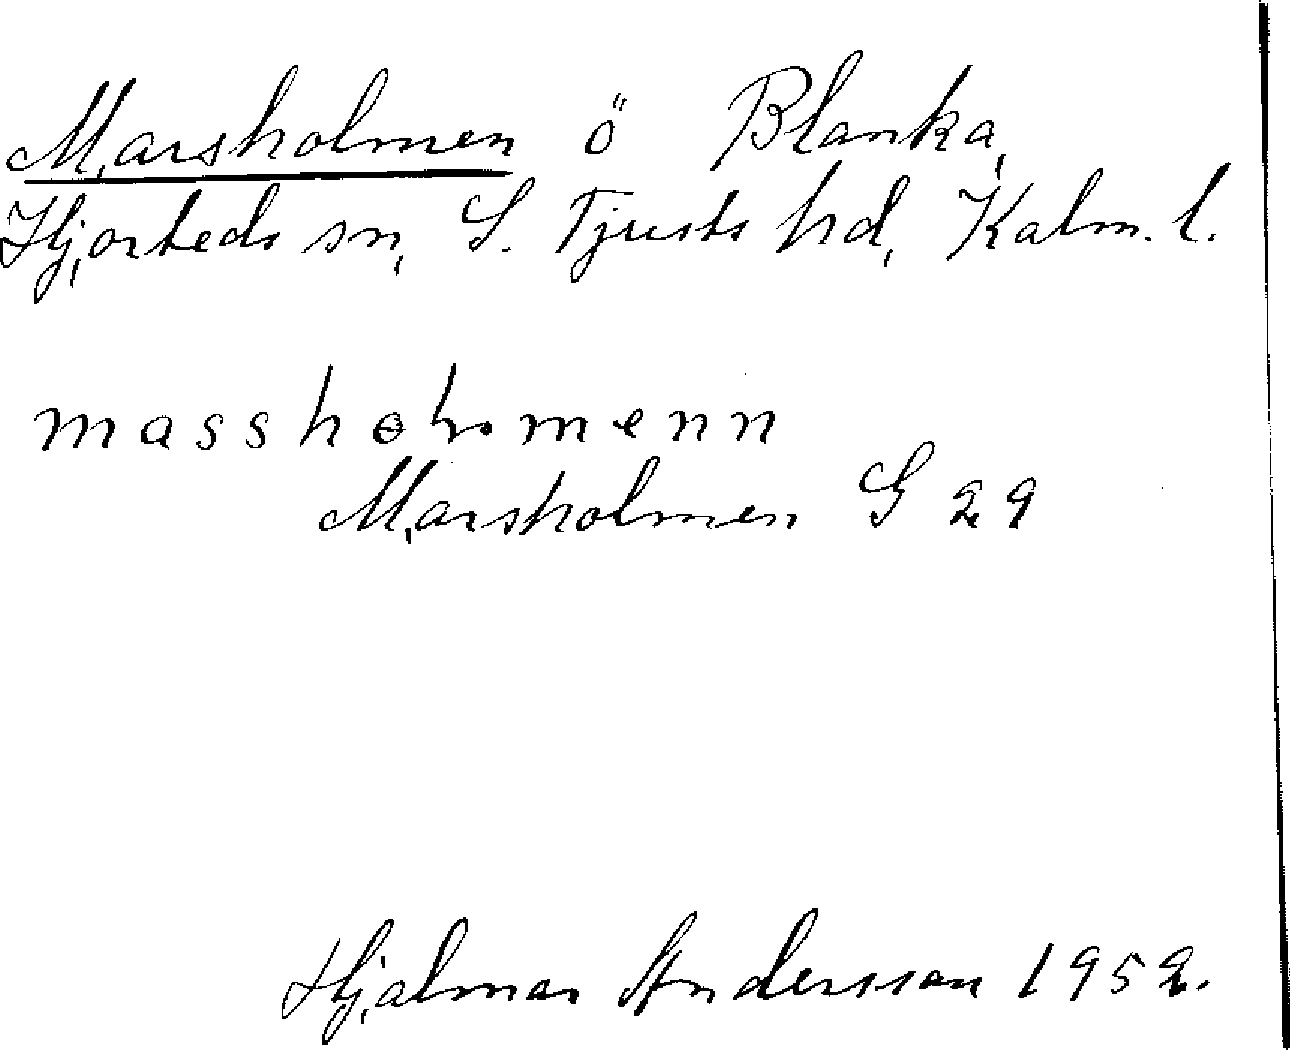 Marsholmen ö Blanka,
Hjorteds sn, S. Tjusts hd, Kalm. l.
masshɵlmenn
Marsholmen G 29
Hjalmar Andersson 1952.